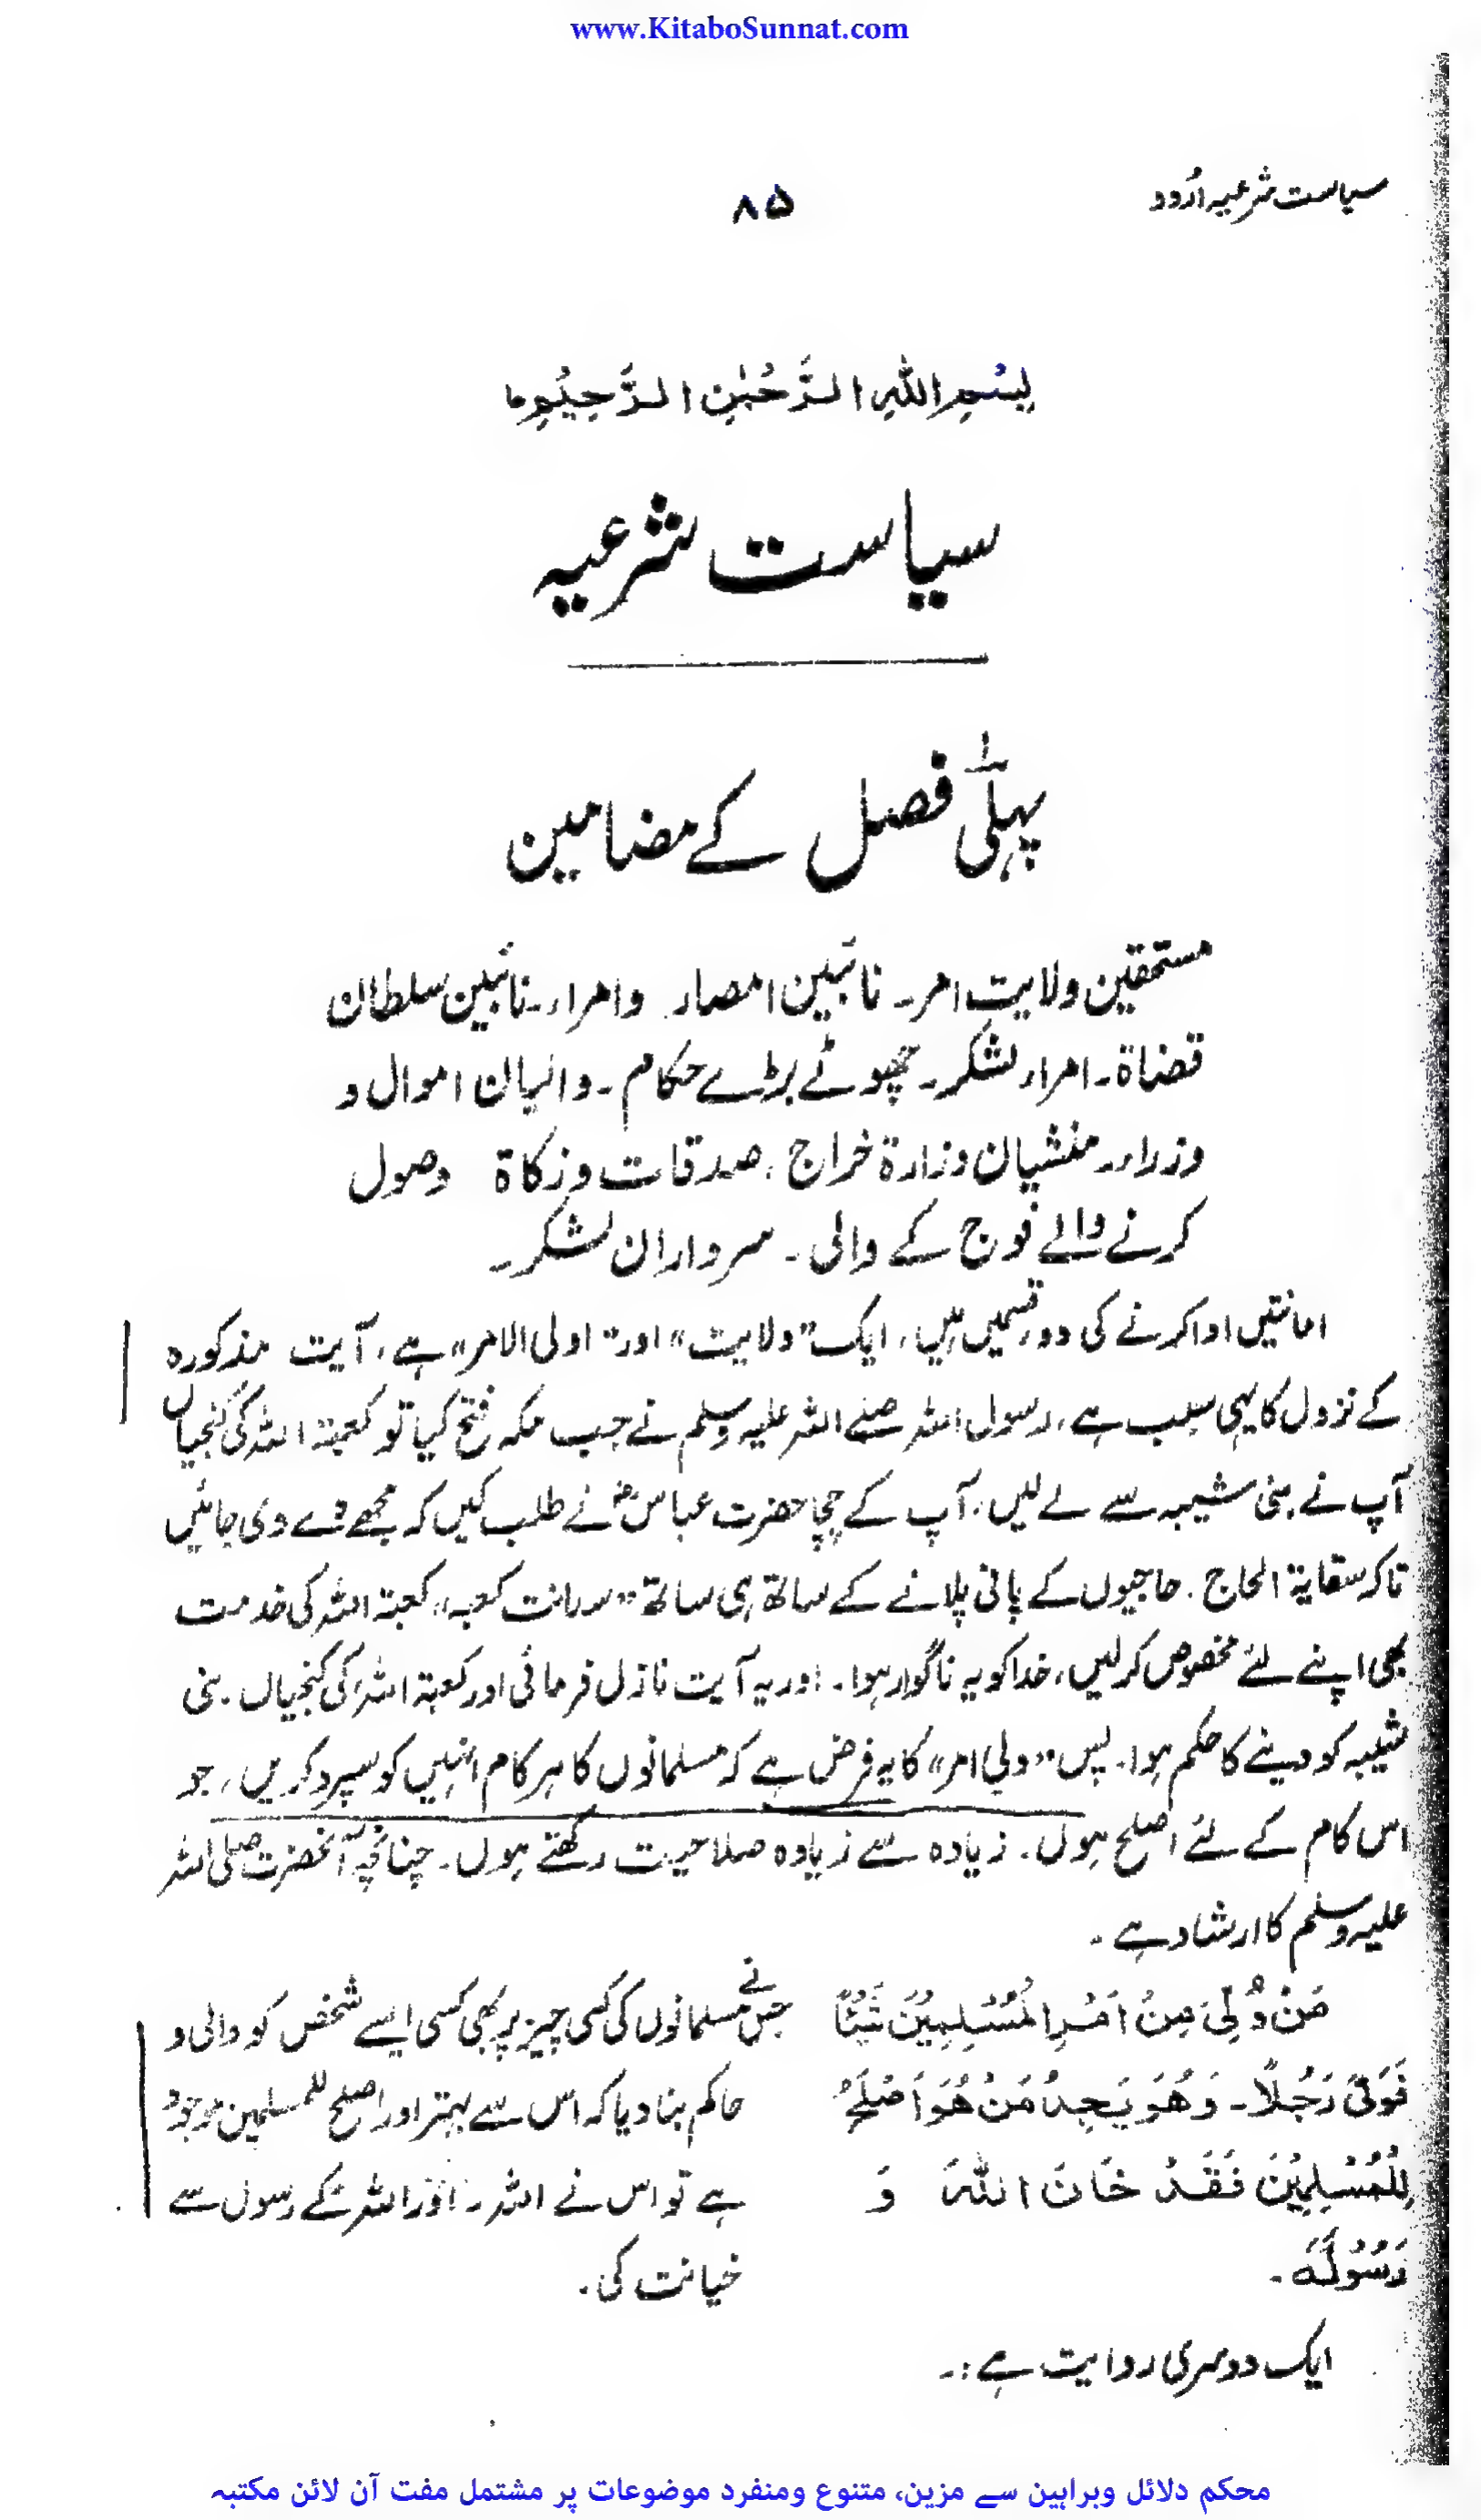 www.KitaboSunnat.com
سیاست شرعیہ اُردو
۸۵
بِسْمِ اللهِ الرَّحْمٰنِ الرَّحِيْمِ
سیاست شرعیہ
پہلی فصل کے مضامین
مستحقین ولایتِ امر۔ نائبین امصار وامراء۔ نائبین سلطان
قضاة۔ امراء لشکر۔ چھوٹے بڑے حکام۔ والیان اموال و
وزراء۔ منشیان وزارة خراج، صدقات و زکاة وصول
کرنے والے فوج کے والی۔ سرداران لشکر۔
امانتیں ادا کرنے کی دو قسمیں ہیں، ایک "ولایت" اور "اولی الامر" ہے، آیت مذکورہ
کے نزول کا یہی سبب ہے، رسول اللہ صلے اللہ علیہ وسلم نے جب مکہ فتح کیا تو کعبۃ اللہ کی کنجیاں
آپ نے بنی شیبہ سے لے لیں، آپ کے چچا حضرت عباسؓ نے طلب کیں کہ مجھے دے دی جائیں
تاکہ سقایۃ الحاج۔ حاجیوں کے پانی پلانے کے ساتھ ہی ساتھ "سدانت کعبہ" کعبۃ اللہ کی خدمت
بھی اپنے لئے مخصوص کر لیں، خدا کو یہ ناگوار ہوا۔ اور یہ آیت نازل فرمائی اور کعبۃ اللہ کی کنجیاں۔ بنی
شیبہ کو دینے کا حکم ہوا۔ پس "ولی امر" کا یہ فرض ہے کہ مسلمانوں کا ہر کام اُنہیں کو سپرد کریں، جو
اس کام کے لئے اصلح ہوں۔ زیادہ سے زیادہ صلاحیت رکھتے ہوں۔ چنانچہ آنحضرت صلی اللہ
علیہ وسلم کا ارشاد ہے۔
مَنْ وُلِّیَ مِنْ اَمْرِ الْمُسْلِمِیْنَ شَیْئًا جس نے مسلمانوں کی کسی چیز پر بھی کسی ایسے شخص کو والی و
فَوَلّٰی رَجُلًا۔ وَهُوَ یَجِدُ مَنْ هُوَ اَصْلَحُ حاکم بنا دیا کہ اس سے بہتر اور اصلح للمسلمین موجود
لِلْمُسْلِمِیْنَ فَقَدْ خَانَ اللهَ وَ ہے تو اس نے اللہ۔ اور اللہ کے رسول سے
رَسُوْلَهٗ۔ خیانت کی۔
ایک دوسری روایت ہے:۔
محکم دلائل وبراہین سے مزین، متنوع ومنفرد موضوعات پر مشتمل مفت آن لائن مکتبہ